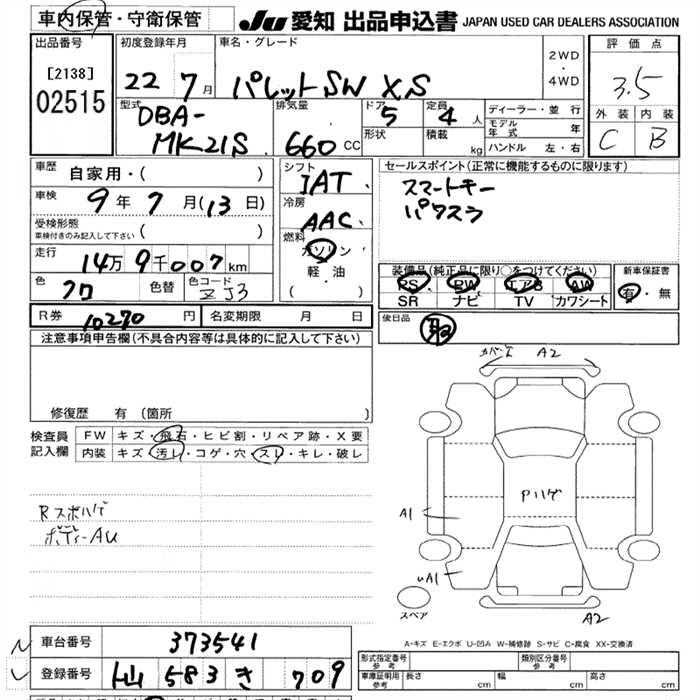 車内保管・守衛保管
JU 愛知 出品申込書 JAPAN USED CAR DEALERS ASSOCIATION
出品番号
[2138]
02515
初度登録年月
22 7月
車名・グレード
パレットSW XS
2WD
・
4WD
評価点
3.5
外装 内装
C B
型式
DBA-
MK21S
排気量
660 CC
ドア
5
形状
定員
4人
積載
kg
ディーラー・並行
モデル年式 年
ハンドル 左・右
車歴
自家用・( )
車検
9年7月(13日)
受検形態
車検付きのみ記入して下さい ( )
走行
14万9千007km
色
クロ
色替
色コード
ZJ3
シフト
IAT
冷房
AAC
燃料
ガソリン
軽・油
( )
セールスポイント(正常に機能するものに限ります)
スマートキー
パワスラ
装備品(純正品に限り○をつけてください)
PS PW エアB AW
SR ナビ TV カワシート
新車保証書
有・無
R券 10270円
名変期限 月 日
後日品
取
注意事項申告欄(不具合内容等は具体的に記入して下さい)
修復歴 有(箇所 )
検査員
記入欄
FW キズ・飛石・ヒビ割・リペア跡・X要
内装 キズ・汚レ・コゲ・穴・スレ・キレ・破レ
Rスポハゲ
ボディーAU
A2
Pハゲ
A1
uA1
スペア
A2
A-キズ E-エクボ U-凹み W-補修跡 S-サビ C-腐食 XX-交換済
車台番号 373541
登録番号 583 き 709
形式指定番号
参考
類別区分番号
参考
車庫証明用
参考
長さ cm 幅 cm 高さ cm